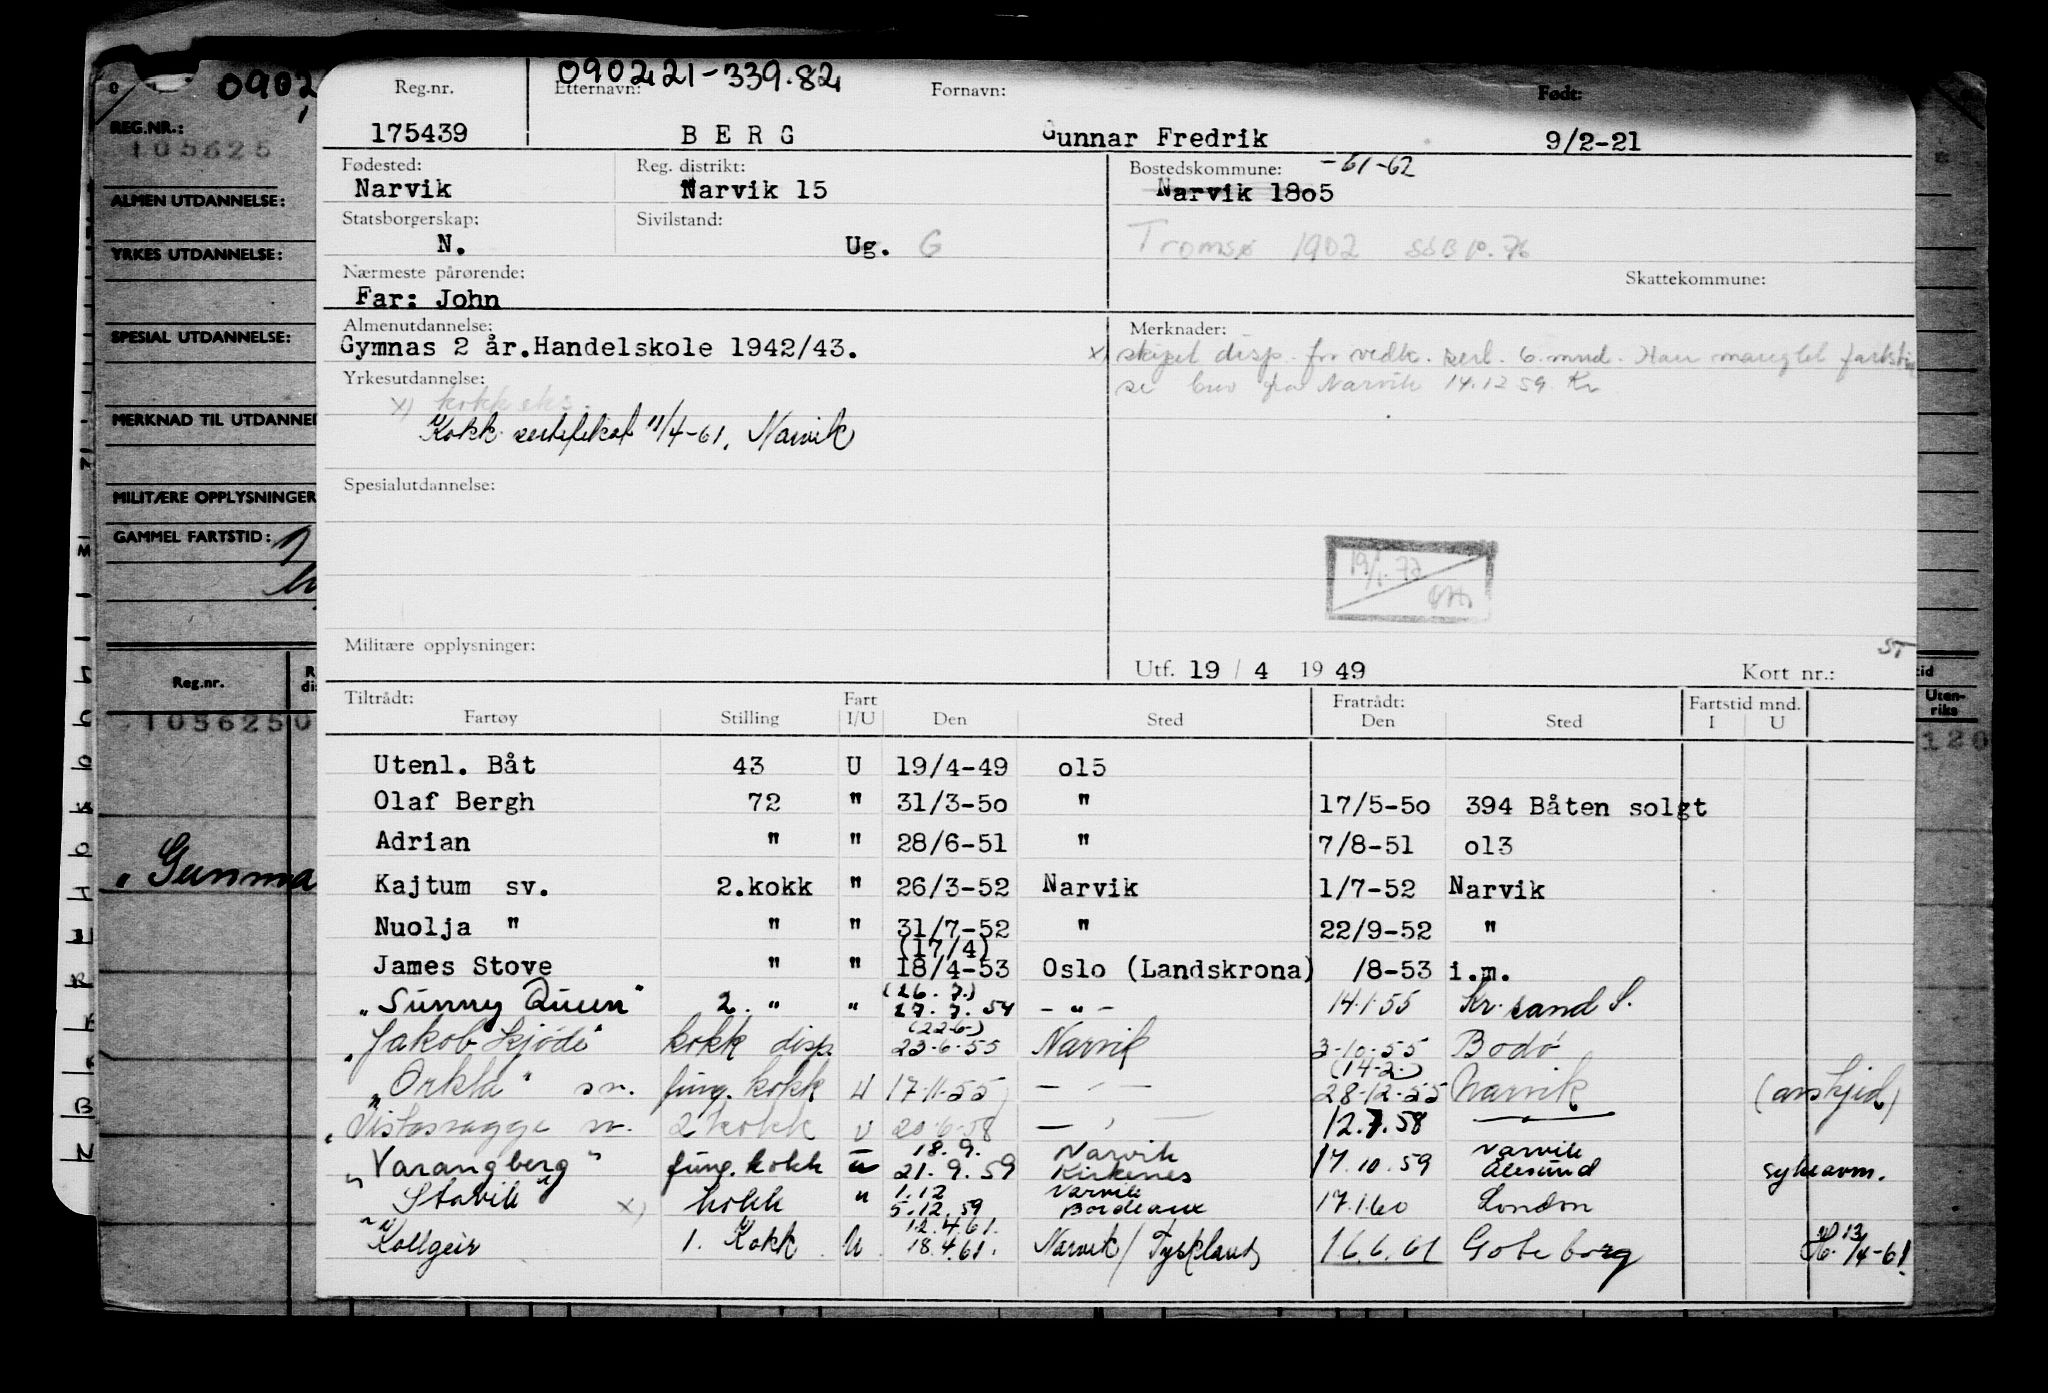 0902
090221-339.82
Reg.nr. Etternavn: Fornavn: Født:
175439 BERG Gunnar Fredrik 9/2-21
Fødested: Reg. distrikt: Bostedskommune: -61-62
Narvik Narvik 15 Narvik 18o5
Statsborgerskap: Sivilstand:
N. Ug. G Tromsø 1902 SSB 10.76
Nærmeste pårørende: Skattekommune:
Far: John
Almenutdannelse: Merknader:
Gymnas 2 år.Handelskole 1942/43. x) skipet disp. for vedk. serl. 6 mnd. Han manglet
Yrkesutdannelse: se brev fra Narvik 14.12 59. Kr
x) kokk eks.
Kokk sertifikat 11/4-61, Narvik
Spesialutdannelse:
19/1.72
Militære opplysninger: Utf. 19 / 4 1949 Kort nr.: ST
Tiltrådt: Fart Fratrådt: Fartstid mnd.
Fartøy Stilling I/U Den Sted Den Sted I U
Utenl. Båt 43 U 19/4-49 ol5
Olaf Bergh 72 " 31/3-5o " 17/5-5o 394 Båten solgt
Adrian " " 28/6-51 " 7/8-51 ol3
Kajtum sv. 2.kokk " 26/3-52 Narvik 1/7-52 Narvik
Nuolja " " " 31/7-52 " 22/9-52 "
(17/4)
James Stove " " 18/4-53 Oslo (Landskrona) /8-53 i.m.
(26.7.)
"Sunny Queen" 2. " " 27.7.54 - " - 14.1.55 Kr.sand S.
(22.6.)
"Jakob Kjöde" kokk disp. 23.6.55 Narvik 3-10-55 Bodø
(14-2.)
"Orkla" sv. fung. kokk U 17.11.55 - " - 28-12-55 Narvik (avskjed)
"Vistasvagge sv. 2 kokk U 20-6-58 - " - 12.7.58 - " -
18.9. Narvik Narvik
"Varangberg" fung. kokk u 21.9.59 Kirkenes 17.10.59 Ålesund sykeavm.
1.12 Narvik
Stavik" x) kokk " 5.12.59 Bordeaux 17.1.60 London
12.4.61.
"Kollgeir 1. Kokk U 18.4.61. Narvik/Tyskland 16.6.61 Göteborg 13/4-61.
REG.NR.:
105625
ALMEN UTDANNELSE:
YRKES UTDANNELSE:
SPESIAL UTDANNELSE:
MERKNAD TIL UTDANNEL
MILITÆRE OPPLYSNINGER
GAMMEL FARTSTID:
Reg.nr. R
di
1056250
"Gunna
tid
Uten-
riks
120